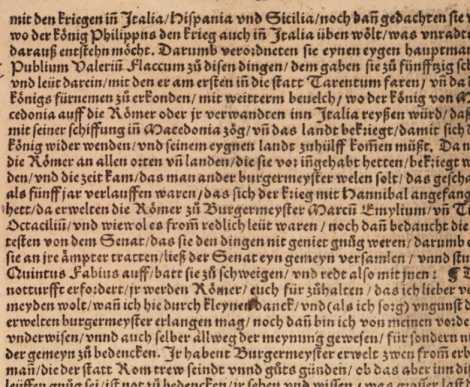 mit den kriegen iñ Italia/Hispania vnd Sicilia/noch dañ gedachten sie
wo der könig Philippus den krieg auch iñ Italia üben wölt/was vnradts
darauß entstehn möcht. Darumb verordneten sie eynen eygen hauptma
Publium Valeriũ Flaccum zů disen dingen/dem gaben sie zů fünffzig sch
vnd leüt darein/mit den er am ersten iñ die statt Tarentum faren/vñ da
königs fürnemen zů erkonden/mit weitterm beuelch/wo der könig von M
cedonia auff die Römer oder jr verwandten inn Italia reyßen würd/daß
mit seiner schiffung iñ Macedonia zög/vñ das landt bekriegt/damit sich
könig wider wenden/vnd seinem eygnen landt zuhülff kom̃en müßt. Da
die Römer an allen orten vñ landen/die sie vor iñgehabt hetten/bekriegt
den/vnd die zeit kam/das man ander burgermeyster welen solt/das gescha
als fünff jar verlauffen waren/das sich der krieg mit Hannibal angefang
hett/da erwelten die Römer zů Burgermeyster Marcũ Emylium/vñ T
Octaciliũ/vnd wiewol es from̃ redlich leüt waren/noch dañ bedaucht die
testen von dem Senat/das sie den dingen nit geniet gnůg weren/darumb
sie an jre ämpter tratten/ließ der Senat eyn gemeyn versamlen/vnnd stu
Quintus Fabius auff/batt sie zů schweigen/vnd redt also mit jnen: ¶
notturfft erfordert/jr werden Römer/euch für zůhalten/das ich lieber
meyden wolt/wañ ich hie durch kleynen danck/vnd (als ich sorg) vngunst
erwelten burgermeyster erlangen mag/noch dañ bin ich von meinen
vnderwisen/vnnd auch selber allweg der meynung gewesen/für sondern
der gemeyn zů bedencken. Jr habent Burgermeyster erwelt zwen from̃ erb
man/die der statt Rom trew seindt vnnd gůts günden/ob das aber inn